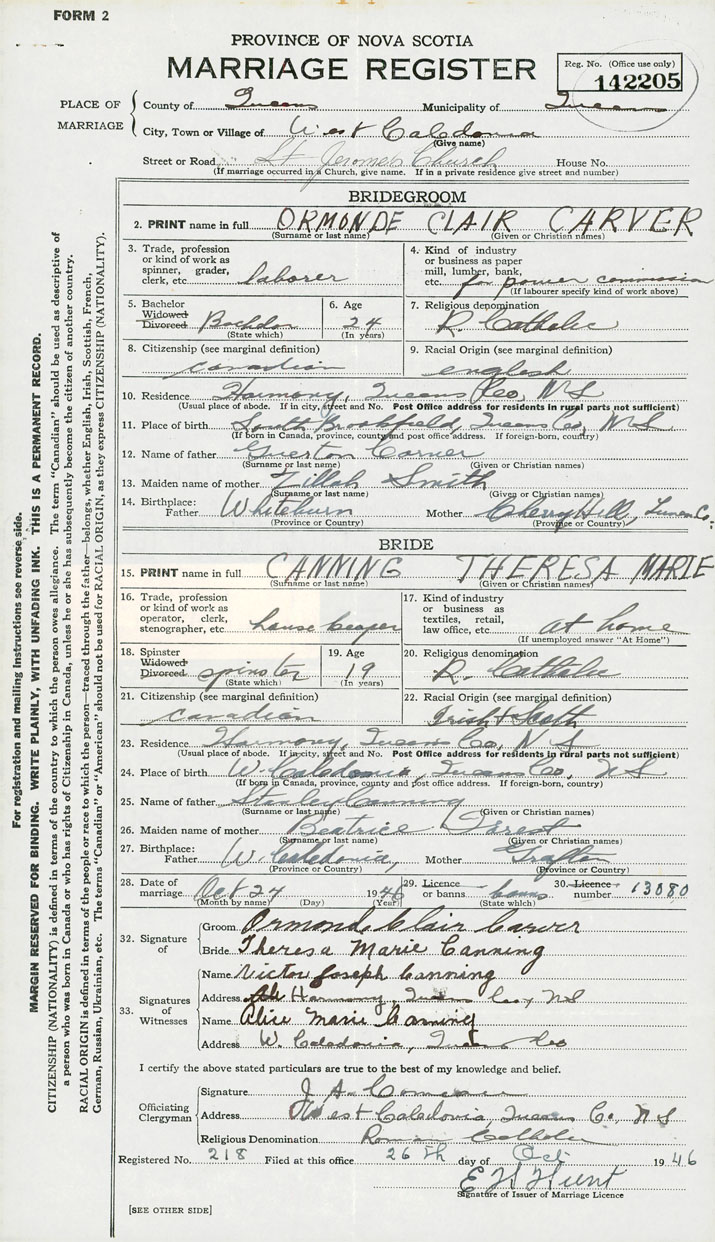 FORM 2
PROVINCE OF NOVA SCOTIA
MARRIAGE REGISTER
Reg. No. (Office use only)
142205
PLACE OF MARRIAGE
County of Queens Municipality of Queens
City, Town or Village of West Caledonia
(Give name)
Street or Road St Jerome's Church House No.
(If marriage occurred in a Church, give name. If in a private residence give street and number)
BRIDEGROOM
2. PRINT name in full ORMONDE CLAIR CARVER
(Surname or last name) (Given or Christian names)
3. Trade, profession or kind of work as spinner, grader, clerk, etc. laborer
4. Kind of industry or business as paper mill, lumber, bank, etc. for power commission
(If labourer specify kind of work above)
5. Bachelor Widowed Divorced Bachelor
(State which)
6. Age 24
(In years)
7. Religious denomination R. Catholic
8. Citizenship (see marginal definition) canadian
9. Racial Origin (see marginal definition) english
10. Residence Harmony, Queens Co, N S
(Usual place of abode. If in city, street and No. Post Office address for residents in rural parts not sufficient)
11. Place of birth South Brookfield, Queens Co, N S
(If born in Canada, province, county and post office address. If foreign-born, country)
12. Name of father Carver
(Surname or last name) (Given or Christian names)
13. Maiden name of mother Zillah Smith
(Surname or last name) (Given or Christian names)
14. Birthplace: Father Whiteburn Mother Cherry Hill, Lunen Co.
(Province or Country) (Province or Country)
BRIDE
15. PRINT name in full CANNING THERESA MARIE
(Surname or last name) (Given or Christian names)
16. Trade, profession or kind of work as operator, clerk, stenographer, etc. house keaper
17. Kind of industry or business as textiles, retail, law office, etc. at home
(If unemployed answer "At Home")
18. Spinster Widowed Divorced spinster
(State which)
19. Age 19
(In years)
20. Religious denomination R. Catholic
21. Citizenship (see marginal definition) canadian
22. Racial Origin (see marginal definition) Irish & Scoth
23. Residence Harmony, Queens Co, N S
(Usual place of abode. If in city, street and No. Post Office address for residents in rural parts not sufficient)
24. Place of birth W. Caledonia, Queens Co, N S
(If born in Canada, province, county and post office address. If foreign-born, country)
25. Name of father Stanley Canning
(Surname or last name) (Given or Christian names)
26. Maiden name of mother Beatrice Forest
(Surname or last name) (Given or Christian names)
27. Birthplace: Father W. Caledonia, Mother Grafton
(Province or Country) (Province or Country)
28. Date of marriage Oct 24 1946
(Month by name) (Day) (Year)
29. Licence or banns banns
(State which)
30. Licence number 13080
32. Signature of
Groom Ormond Clair Carver
Bride Theresa Marie Canning
33. Signatures of Witnesses
Name Victor Joseph Canning
Address Harmony, Queens Co, N S
Name Alice Marie Canning
Address W. Caledonia, Queens Co
I certify the above stated particulars are true to the best of my knowledge and belief.
Officiating Clergyman
Signature J. A. Comeau
Address West Caledonia, Queens Co, N S
Religious Denomination Roman Catholic
Registered No. 218 Filed at this office 26th day of Oct 1946
E H Hunt
Signature of Issuer of Marriage Licence
[SEE OTHER SIDE]
For registration and mailing instructions see reverse side.
MARGIN RESERVED FOR BINDING. WRITE PLAINLY, WITH UNFADING INK. THIS IS A PERMANENT RECORD.
CITIZENSHIP (NATIONALITY) is defined in terms of the country to which the person owes allegiance. The term "Canadian" should be used as descriptive of
a person who was born in Canada or who has rights of Citizenship in Canada, unless he or she has subsequently become the citizen of another country.
RACIAL ORIGIN is defined in terms of the people or race to which the person—traced through the father—belongs, whether English, Irish, Scottish, French,
German, Russian, Ukrainian, etc. The terms "Canadian" or "American" should not be used for RACIAL ORIGIN, as they express CITIZENSHIP (NATIONALITY).